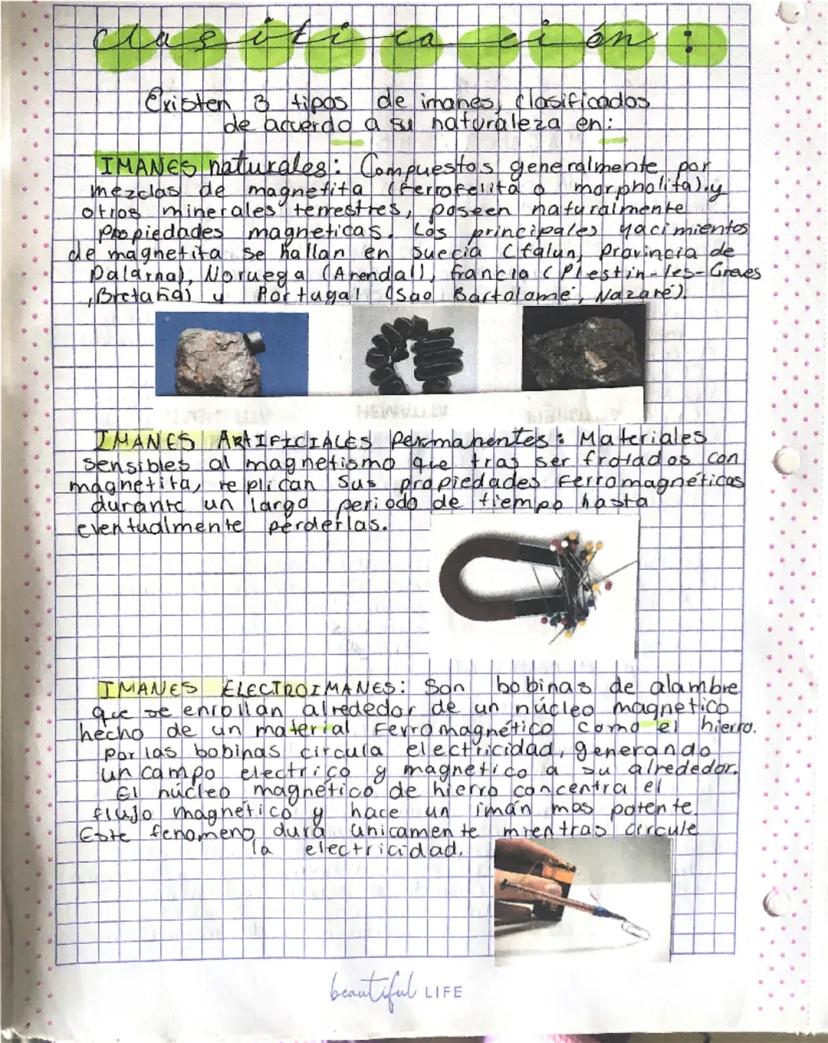 Clasificación:
Existen 3 tipos de imanes, clasificados
de acuerdo a su naturaleza en:
IMANES naturales: Compuestos generalmente por
mezclas de magnetita (Ferrofelita o morpholita) y
otros minerales terrestres, poseen naturalmente
Propiedades magneticas. Los principales yacimientos
de magnetita se hallan en suecia (falun, Provincia de
Dalarna), Noruega (Arendal), francia (Plestin-les-Greves
,Bretaña) y Portugal (Sao Bartolomé, Nazaré).
IMANES ARTIFICIALES Permanentes: Materiales
sensibles al magnetismo que tras ser frotados con
magnetita, replican sus propiedades Ferromagnéticas
durante un largo periodo de tiempo hasta
eventualmente perderlas.
IMANES ELECTROIMANES: Son bobinas de alambre
que se enrollan alrededor de un núcleo magnetico
hecho de un material Ferromagnético como el hierro.
Por las bobinas circula electricidad, generando
un campo electrico y magnetico a su alrededor.
El núcleo magnético de hierro concentra el
flujo magnético y hace un imán mas potente.
Este fenomeno dura unicamente mientras circule
la electricidad.
beautiful LIFE